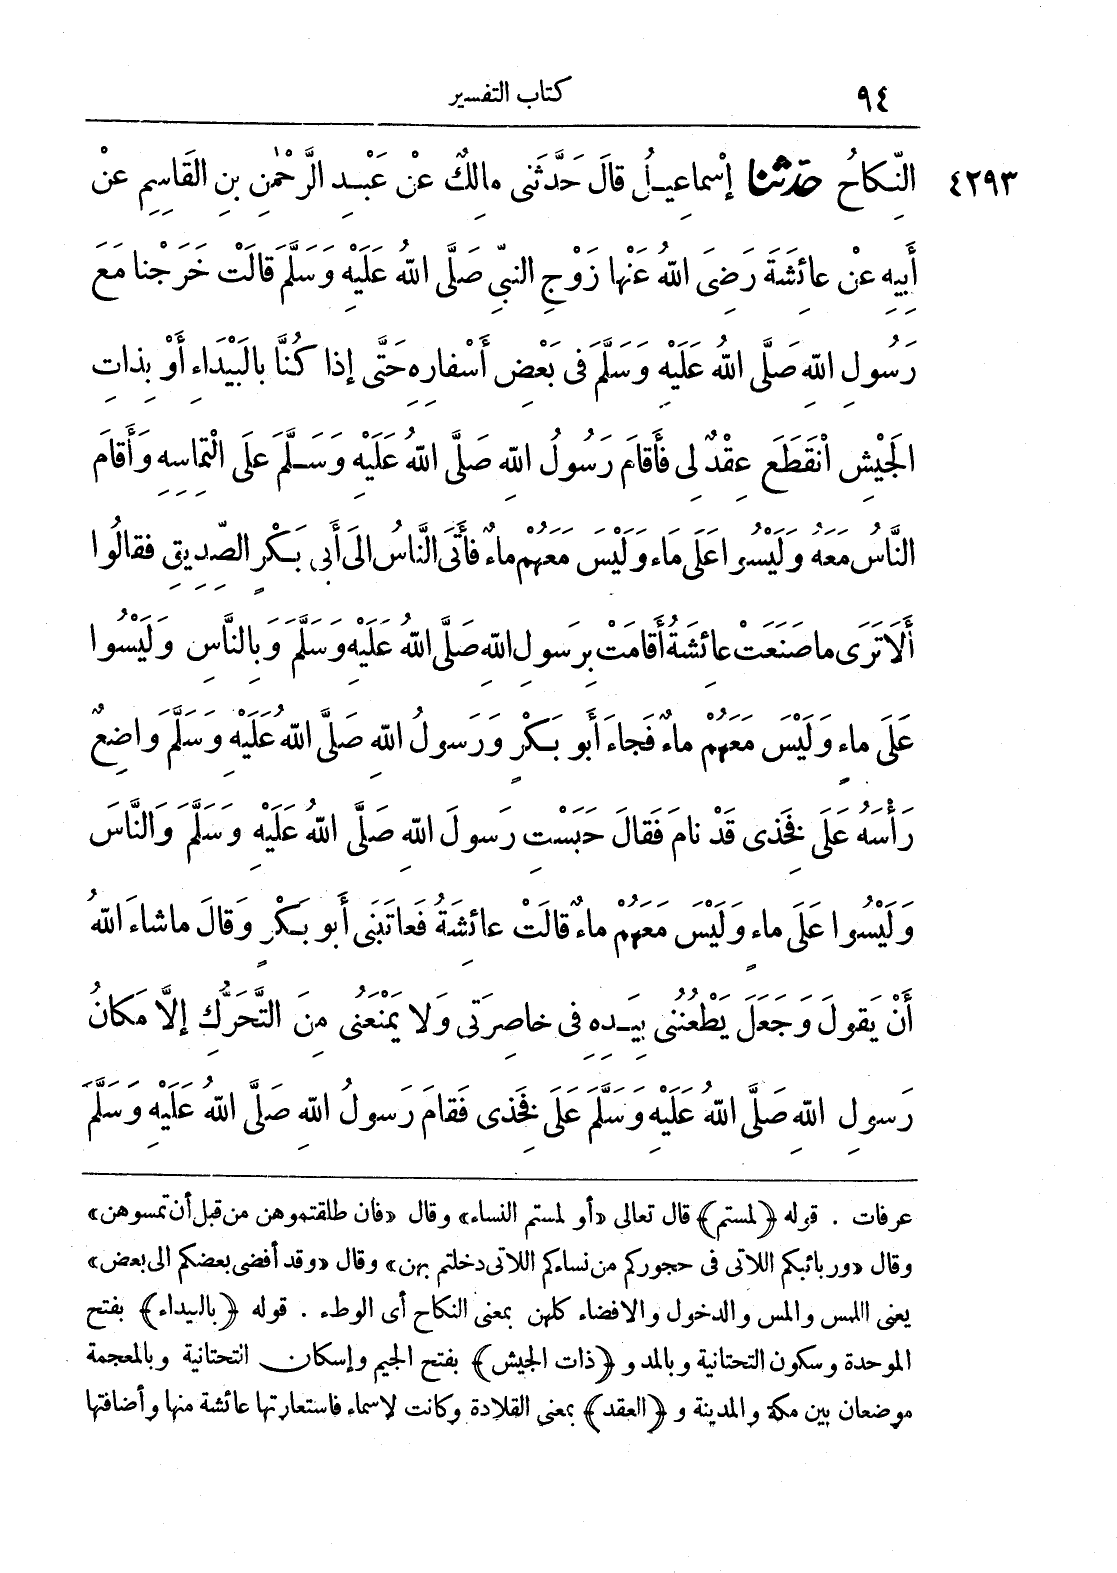 ٩٤
كتاب التفسير
٤٢٩٣
النِّكاحُ حَدَّثنا إِسْماعِيلُ قالَ حَدَّثَنِى مالِكٌ عَنْ عَبْدِ الرَّحْمٰنِ بنِ القَاسِمِ عَنْ
أَبِيهِ عنْ عائِشَةَ رَضِىَ اللّٰهُ عَنْها زَوْجِ النبىِّ صَلَّى اللّٰهُ عَلَيْهِ وَسَلَّمَ قالَتْ خَرَجْنا مَعَ
رَسُولِ اللّٰهِ صَلَّى اللّٰهُ عَلَيْهِ وَسَلَّمَ فى بَعْضِ أَسْفارِهِ حَتَّى إِذا كُنَّا بالبَيْداءِ أوْ بِذاتِ
الجَيْشِ انْقَطَعَ عِقْدٌ لِى فأَقامَ رَسُولُ اللّٰهِ صَلَّى اللّٰهُ عَلَيْهِ وَسَلَّمَ علَى الْتِماسِهِ وَأَقامَ
النَّاسُ مَعَهُ وَلَيْسُوا عَلَى مَاءٍ وَلَيْسَ مَعَهُمْ ماءٌ فأَتَى النَّاسُ الى أَبِى بَكْرٍ الصِّدِّيقِ فقالُوا
أَلاَ تَرَى ما صَنَعَتْ عائِشَةُ أَقامَتْ بِرَسولِ اللّٰهِ صَلَّى اللّٰهُ عَلَيْهِ وَسَلَّمَ وَبِالنَّاسِ وَلَيْسُوا
عَلَى ماءٍ وَلَيْسَ مَعَهُمْ ماءٌ فَجاءَ أَبو بَكْرٍ وَرَسولُ اللّٰهِ صَلَّى اللّٰهُ عَلَيْهِ وَسَلَّمَ وَاضِعٌ
رَأْسَهُ عَلَى فَخِذِى قَدْ نامَ فَقالَ حَبَسْتِ رَسولَ اللّٰهِ صَلَّى اللّٰهُ عَلَيْهِ وَسَلَّمَ وَالنَّاسَ
وَلَيْسُوا عَلَى ماءٍ وَلَيْسَ مَعَهُمْ ماءٌ قالَتْ عائِشَةُ فَعاتَبَنِى أَبو بَكْرٍ وَقالَ ماشاءَ اللّٰهُ
أَنْ يَقولَ وَجَعَلَ يَطْعُنُنِى بِيَدِهِ فِى خاصِرَتِى وَلا يَمْنَعُنِى مِنَ التَّحَرُّكِ إلَّا مَكانُ
رَسولِ اللّٰهِ صَلَّى اللّٰهُ عَلَيْهِ وَسَلَّمَ عَلَى فَخِذِى فَقامَ رَسولُ اللّٰهِ صَلَّى اللّٰهُ عَلَيْهِ وَسَلَّمَ
عرفات . قوله ﴿لمستم﴾ قال تعالى «أو لمستم النساء» وقال «فان طلقتموهن من قبل أن تمسوهن»
وقال «وربائبكم اللاتى فى حجوركم من نساءكم اللاتى دخلتم بهن» وقال «وقد أفضى بعضكم الى بعض»
يعنى اللمس والمس والدخول والافضاء كلهن بمعنى النكاح أى الوطء . قوله ﴿بالبيداء﴾ بفتح
الموحدة وسكون التحتانية وبالمد و ﴿ذات الجيش﴾ بفتح الجيم وإسكان التحتانية وبالمعجمة
موضعان بين مكة والمدينة و ﴿العقد﴾ بمعنى القلادة وكانت لاسماء فاستعارتها عائشة منها وأضافتها